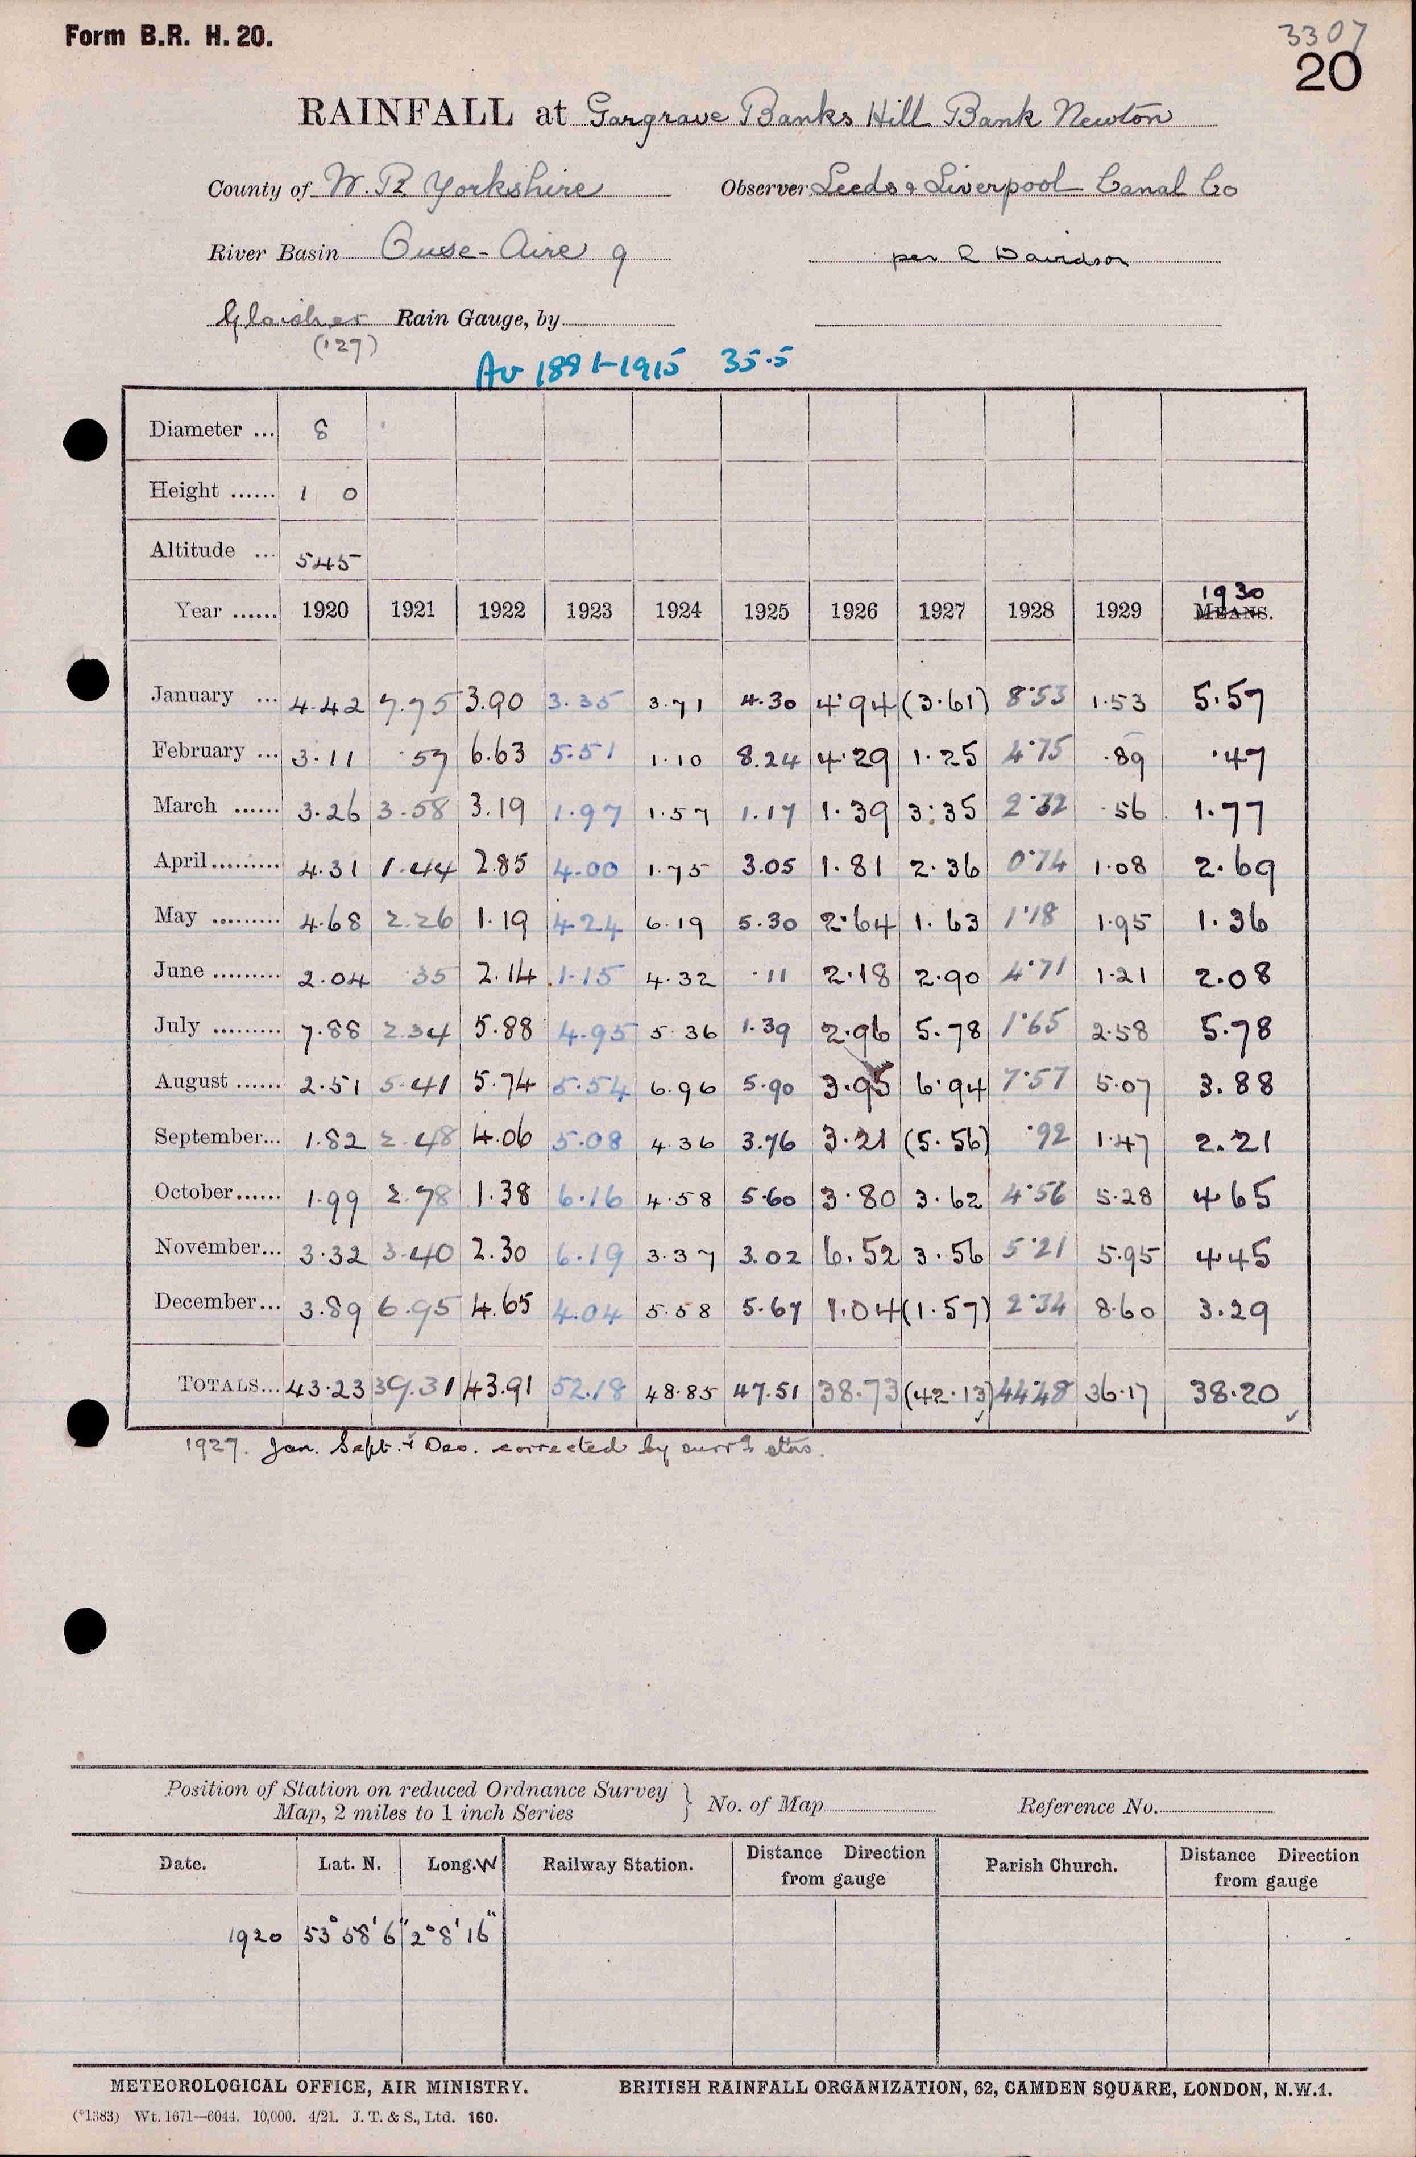 Form B.R. H. 20.
3307
20
RAINFALL at Gargrave Banks Hill Bank Newton
County of W. R Yorkshire Observer Leeds & Liverpool Canal Co
River Basin Ouse-Aire 9 per R Davidson
Glaisher Rain Gauge, by
(127)
Av 1881-1915 35.5
Diameter ... 8
Height ...... 1 0
Altitude ... 545
Year ...... 1920 1921 1922 1923 1924 1925 1926 1927 1928 1929 1930 MEANS.
January ... 4.42 7.75 3.90 3.35 3.71 4.30 4.94 (3.61) 8.53 1.53 5.57
February ... 3.11 .57 6.63 5.51 1.10 8.24 4.29 1.25 4.75 .89 .47
March ...... 3.26 3.58 3.19 1.97 1.57 1.17 1.39 3.35 2.32 .56 1.77
April ......... 4.31 1.44 2.85 4.00 1.75 3.05 1.81 2.36 0.74 1.08 2.69
May ......... 4.68 2.26 1.19 4.24 6.19 5.30 2.64 1.63 1.18 1.95 1.36
June ......... 2.04 .35 2.14 1.15 4.32 .11 2.18 2.90 4.71 1.21 2.08
July ......... 7.88 2.34 5.88 4.95 5.36 1.39 2.96 5.78 1.65 2.58 5.78
August ...... 2.51 5.41 5.74 5.54 6.96 5.90 3.95 6.94 7.57 5.07 3.88
September... 1.82 2.48 4.06 5.08 4.36 3.76 3.21 (5.56) .92 1.47 2.21
October...... 1.99 2.78 1.38 6.16 4.58 5.60 3.80 3.62 4.56 5.28 4.65
November... 3.32 3.40 2.30 6.19 3.37 3.02 6.52 3.56 5.21 5.95 4.45
December... 3.89 6.95 4.65 4.04 5.58 5.67 1.04 (1.57) 2.34 8.60 3.29
TOTALS... 43.23 39.31 43.91 52.18 48.85 47.51 38.73 (42.13) 44.48 36.17 38.20
1927. Jan. Sept. & Dec. corrected by surrg stns.
Position of Station on reduced Ordnance Survey
Map, 2 miles to 1 inch Series } No. of Map Reference No.
Date. Lat. N. Long. W Railway Station. Distance Direction from gauge Parish Church. Distance Direction from gauge
1920 53° 58' 6" 2° 8' 16"
METEOROLOGICAL OFFICE, AIR MINISTRY. BRITISH RAINFALL ORGANIZATION, 62, CAMDEN SQUARE, LONDON, N.W.1.
(*1383) Wt. 1671—6044. 10,000. 4/21. J. T. & S., Ltd. 160.